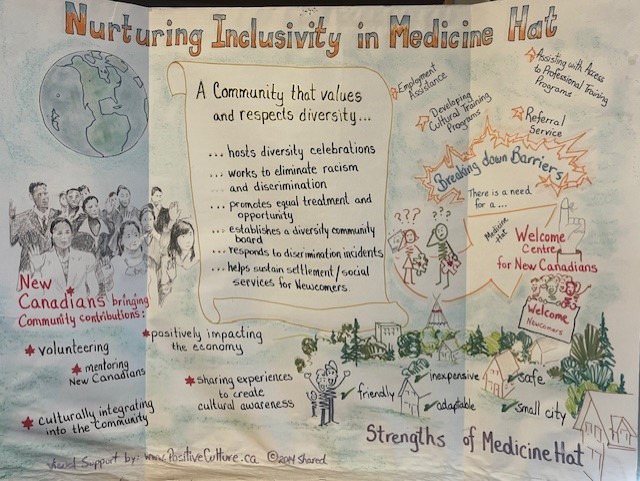 Nurturing Inclusivity in Medicine Hat
A Community that values
and respects diversity...
... hosts diversity celebrations
... works to eliminate racism
and discrimination
... promotes equal treatment and
opportunity
... establishes a diversity community
board
... responds to discrimination incidents
... helps sustain settlement/social
services for Newcomers.
Employment
Assistance
Developing
Cultural Training
Programs
Assisting with Access
to Professional Training
Programs
Referral
Service
Breaking down Barriers
There is a need
for a ...
Medicine
Hat
Welcome
Centre
for New Canadians
Welcome
Newcomers
???
???
New
Canadians bringing
Community contributions:
volunteering
mentoring
New Canadians
culturally integrating
into the Community
positively impacting
the economy
sharing experiences
to create
cultural awareness
friendly
inexpensive
adaptable
safe
small city
Strengths of Medicine Hat
Visual Support by: www.PositiveCulture.ca ©2014 Shared